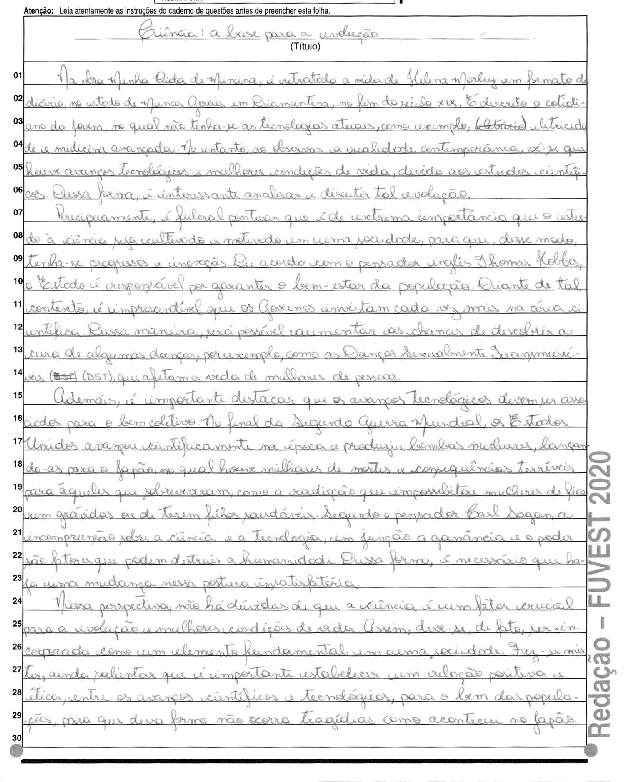 Atenção: Leia atentamente as instruções do caderno de questões antes de preencher esta folha.
Ciência: a base para a evolução
(Título)
01 Na obra Minha Vida de Menina, é retratado a vida de Helena Morley em formato de
02 diário, no estado de Minas Gerais em Diamantina, no fim do século XIX. É descrito o cotidi-
03 ano da jovem, no qual não tinha-se as tecnologias atuais, como exemplo, eletricida-
04 de e medicina avançada. No entanto, ao observar a realidade contemporânea, vê-se que
05 houve avanços tecnológicos e melhores condições de vida, devido aos estudos científi-
06 cos. Dessa forma, é interessante analisar e discutir tal evolução.
07 Precipuamente, é fulcral pontuar que é de extrema importância que o estu-
08 do à ciência seja cultivado e motivado em uma sociedade, para que, desse modo,
09 tenha-se progressos e inovações. De acordo com o pensador inglês Thomas Hobbes,
10 o Estado é responsável por garantir o bem-estar da população. Diante de tal
11 contexto, é imprescindível que os Governos invistam cada vez mais na área ci-
12 entífica. Dessa maneira, será possível aumentar as chances de descobrir a
13 cura de algumas doenças, por exemplo, como as Doenças Sexualmente Transmissí-
14 veis (DST), que afetam a vida de milhares de pessoas.
15 Ademais, é importante destacar que os avanços tecnológicos devem ser asso-
16 ciados para o bem coletivo. No final da Segunda Guerra Mundial, os Estados
17 Unidos avançou cientificamente na época e produziu bombas nucleares, lançan-
18 do-as para o Japão, no qual houve milhares de mortes e consequências terríveis
19 para àqueles que sobreviveram, como a radiação que impossibilitou mulheres de fica-
20 rem grávidas ou de terem filhos saudáveis. Segundo o pensador Carl Sagan, a
21 incompreensão sobre a ciência e a tecnologia, em junção a ganância e o poder
22 são fatores que podem destruir a humanidade. Dessa forma, é necessário que ha-
23 ja uma mudança nessa postura insatisfatória.
24 Nessa perspectiva, não há dúvidas de que a ciência é um fator crucial
25 para a evolução e melhores condições de vida. Assim, deve-se, de fato, ser in-
26 corporada como um elemento fundamental em uma sociedade. Faz-se mis-
27 ter, ainda, salientar que é importante estabelecer uma relação positiva e
28 ética, entre os avanços científicos e tecnológicos, para o bem das popula-
29 ções, para que dessa forma não ocorra tragédias como aconteceu no Japão.
30
Redação – FUVEST 2020